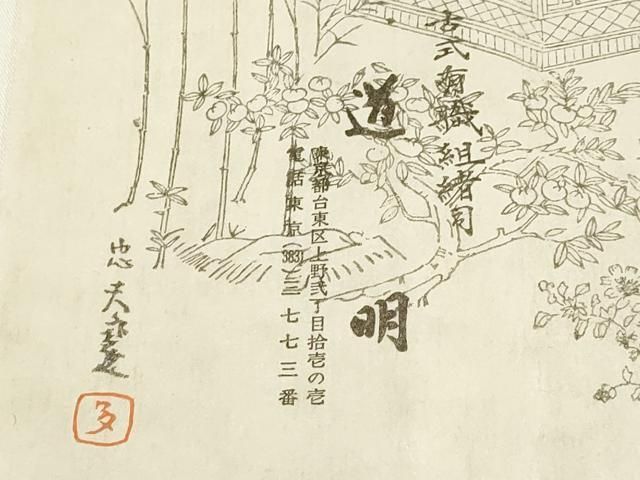 古式有職組緒司
道明
東京都台東区上野弐丁目拾壱の壱
電話東京(383)三七七三番
忠夫